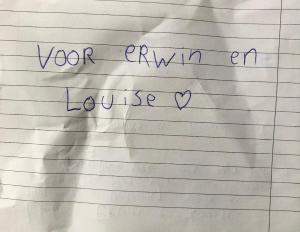 VOOR ERWin en
LOUiSe ♡